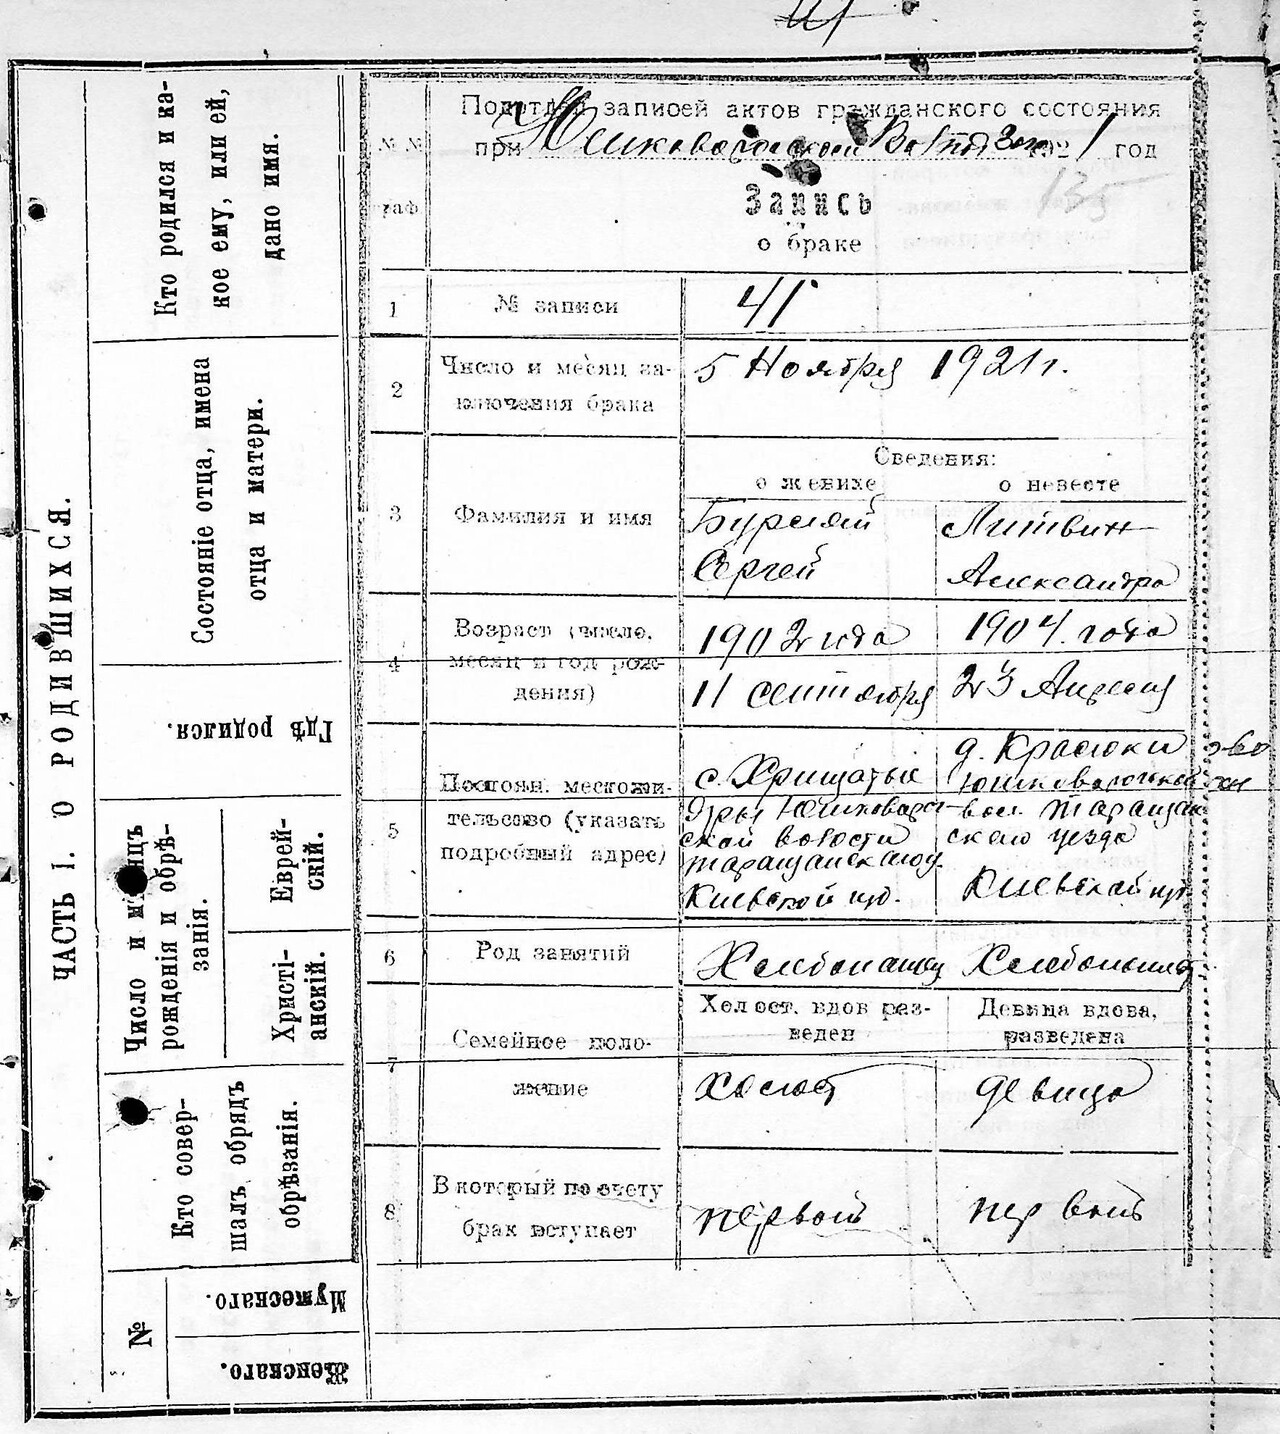 ЧАСТЬ I. О РОДИВШИХСЯ.
Кто родился и ка-
кое ему, или ей,
дано имя.
Состояніе отца, имена
отца и матери.
Гдѣ родился.
Число и мѣсяцъ
рожденія и обрѣ-
занія.
Еврей-
скій.
Христі-
анскій.
Кто совер-
шалъ обрядъ
обрѣзанія.
№
Мужескаго.
Женскаго.
№ №
граф
Подотдел записей актов гражданского состояния
при Юшковарогской 1921 год
135
Запись
о браке
1
№ записи
41
2
Число и месяц за-
ключения брака
5 Ноября 1921 г.
3
Фамилия и имя
Сведения:
о женихе
о невесте
Сергей
Литвин
Александра
4
Возраст (число,
месяц и год рож-
дения)
1902 года
11 сентября
1904. года
23 Апреля
5
Постоян. местожи-
тельсово (указать
подробный адрес)
с. Хрищатые
Яры Юшковарог-
ской волости
Таращанского у.
Киевской губ.
д. Красюки
Юшковарогской
вол. Таращан
ского уезда
Киевской губ
6
Род занятий
Хлебопашец
7
Семейное поло-
жение
Холост. вдов раз-
веден
Девица вдова,
разведена
холост
девица
8
В который по счету
брак вступает
первый
первый